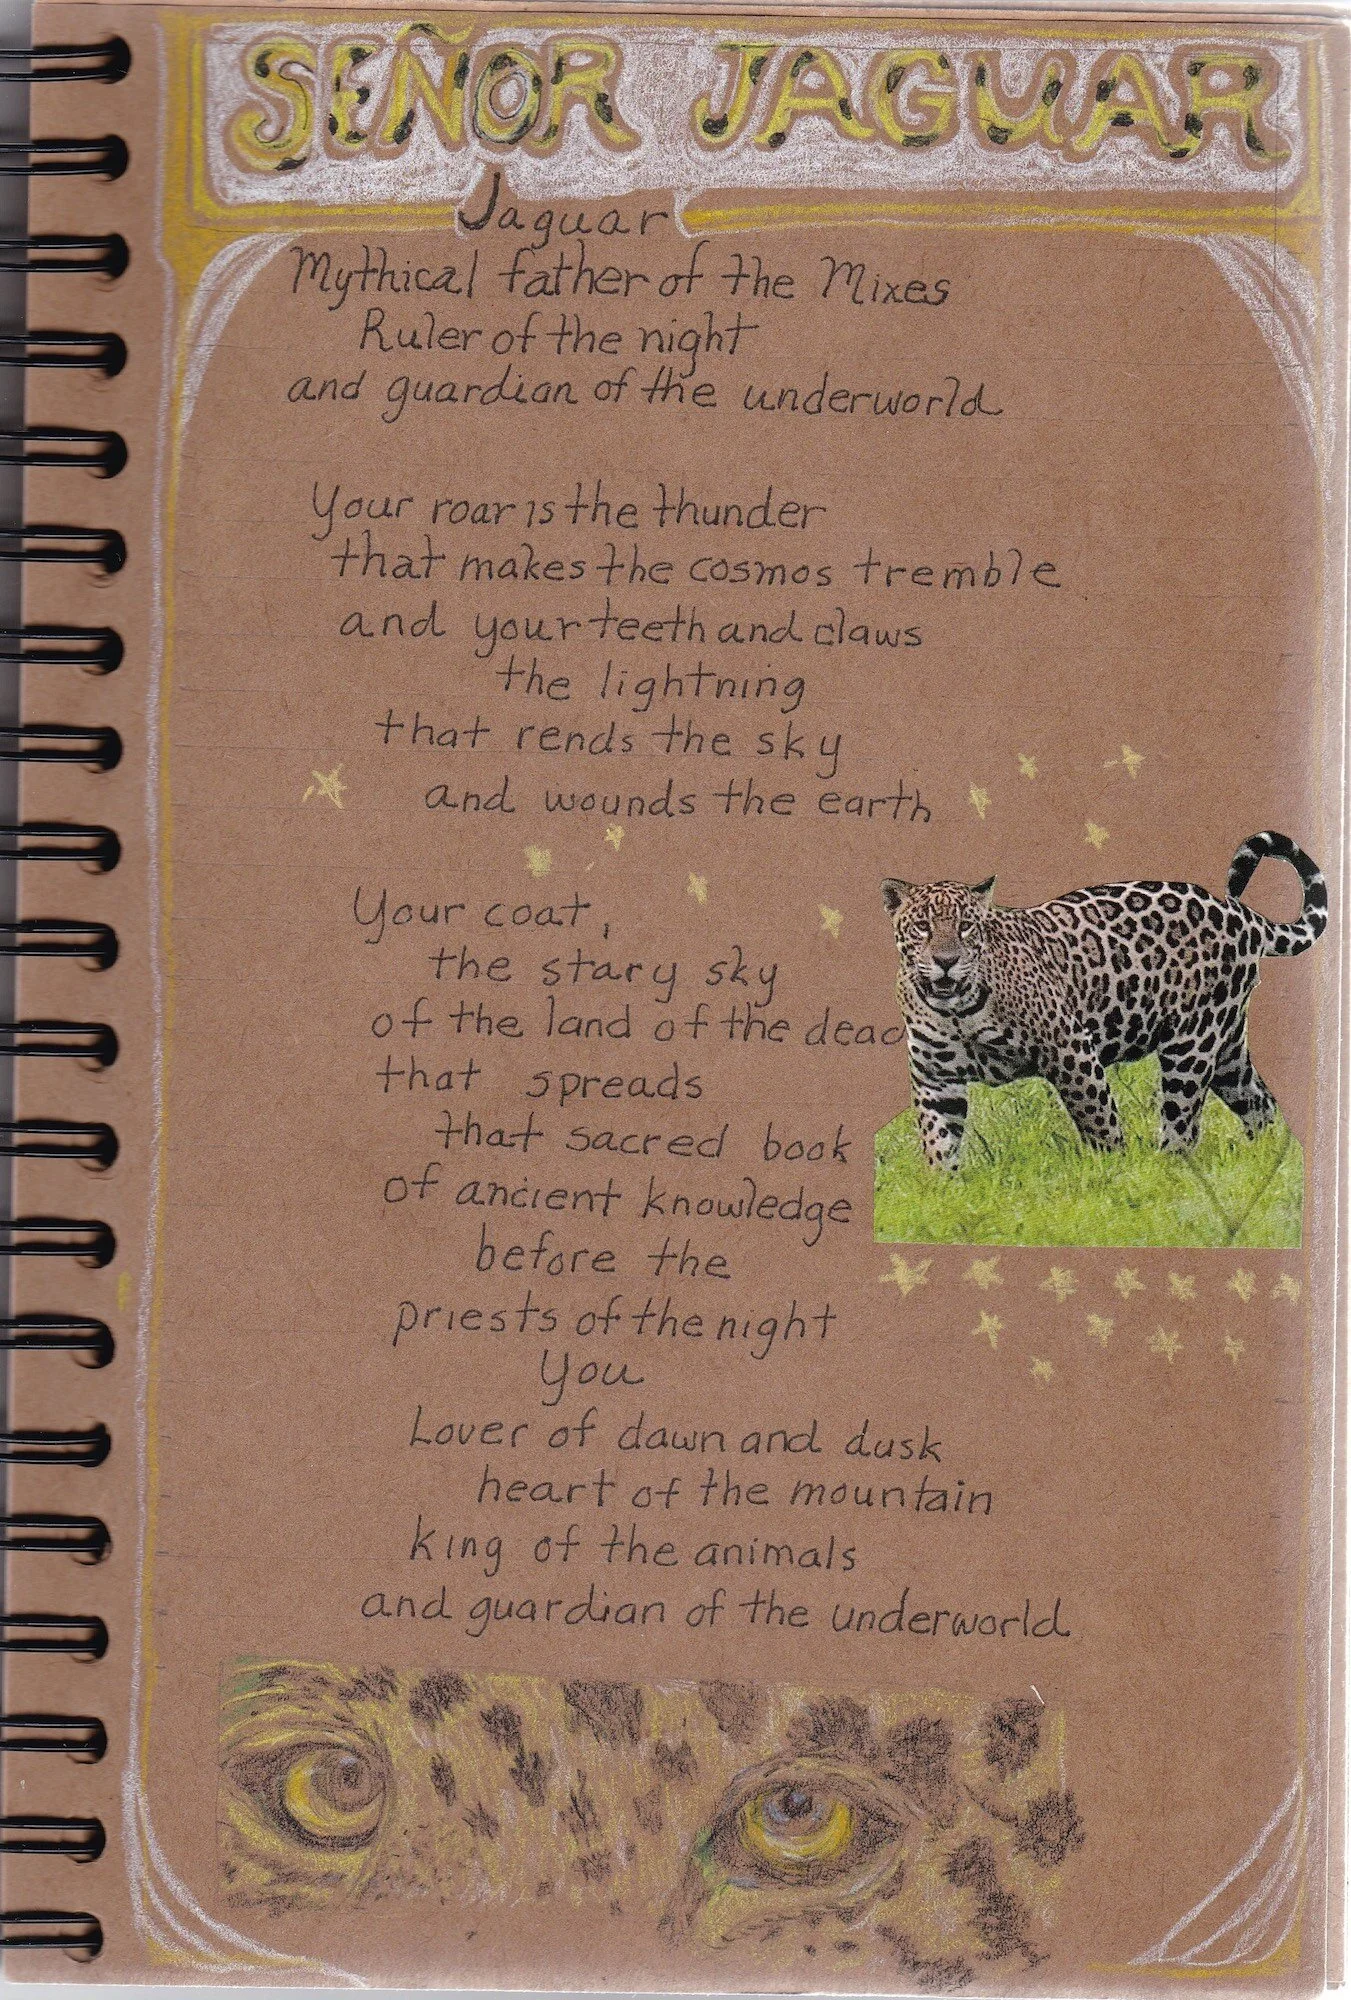 SEÑOR JAGUAR
Jaguar
Mythical father of the Mixes
Ruler of the night
and guardian of the underworld
Your roar is the thunder
that makes the cosmos tremble
and your teeth and claws
the lightning
that rends the sky
and wounds the earth
Your coat,
the stary sky
of the land of the dead
that spreads
that sacred book
of ancient knowledge
before the
priests of the night
You
Lover of dawn and dusk
heart of the mountain
king of the animals
and guardian of the underworld